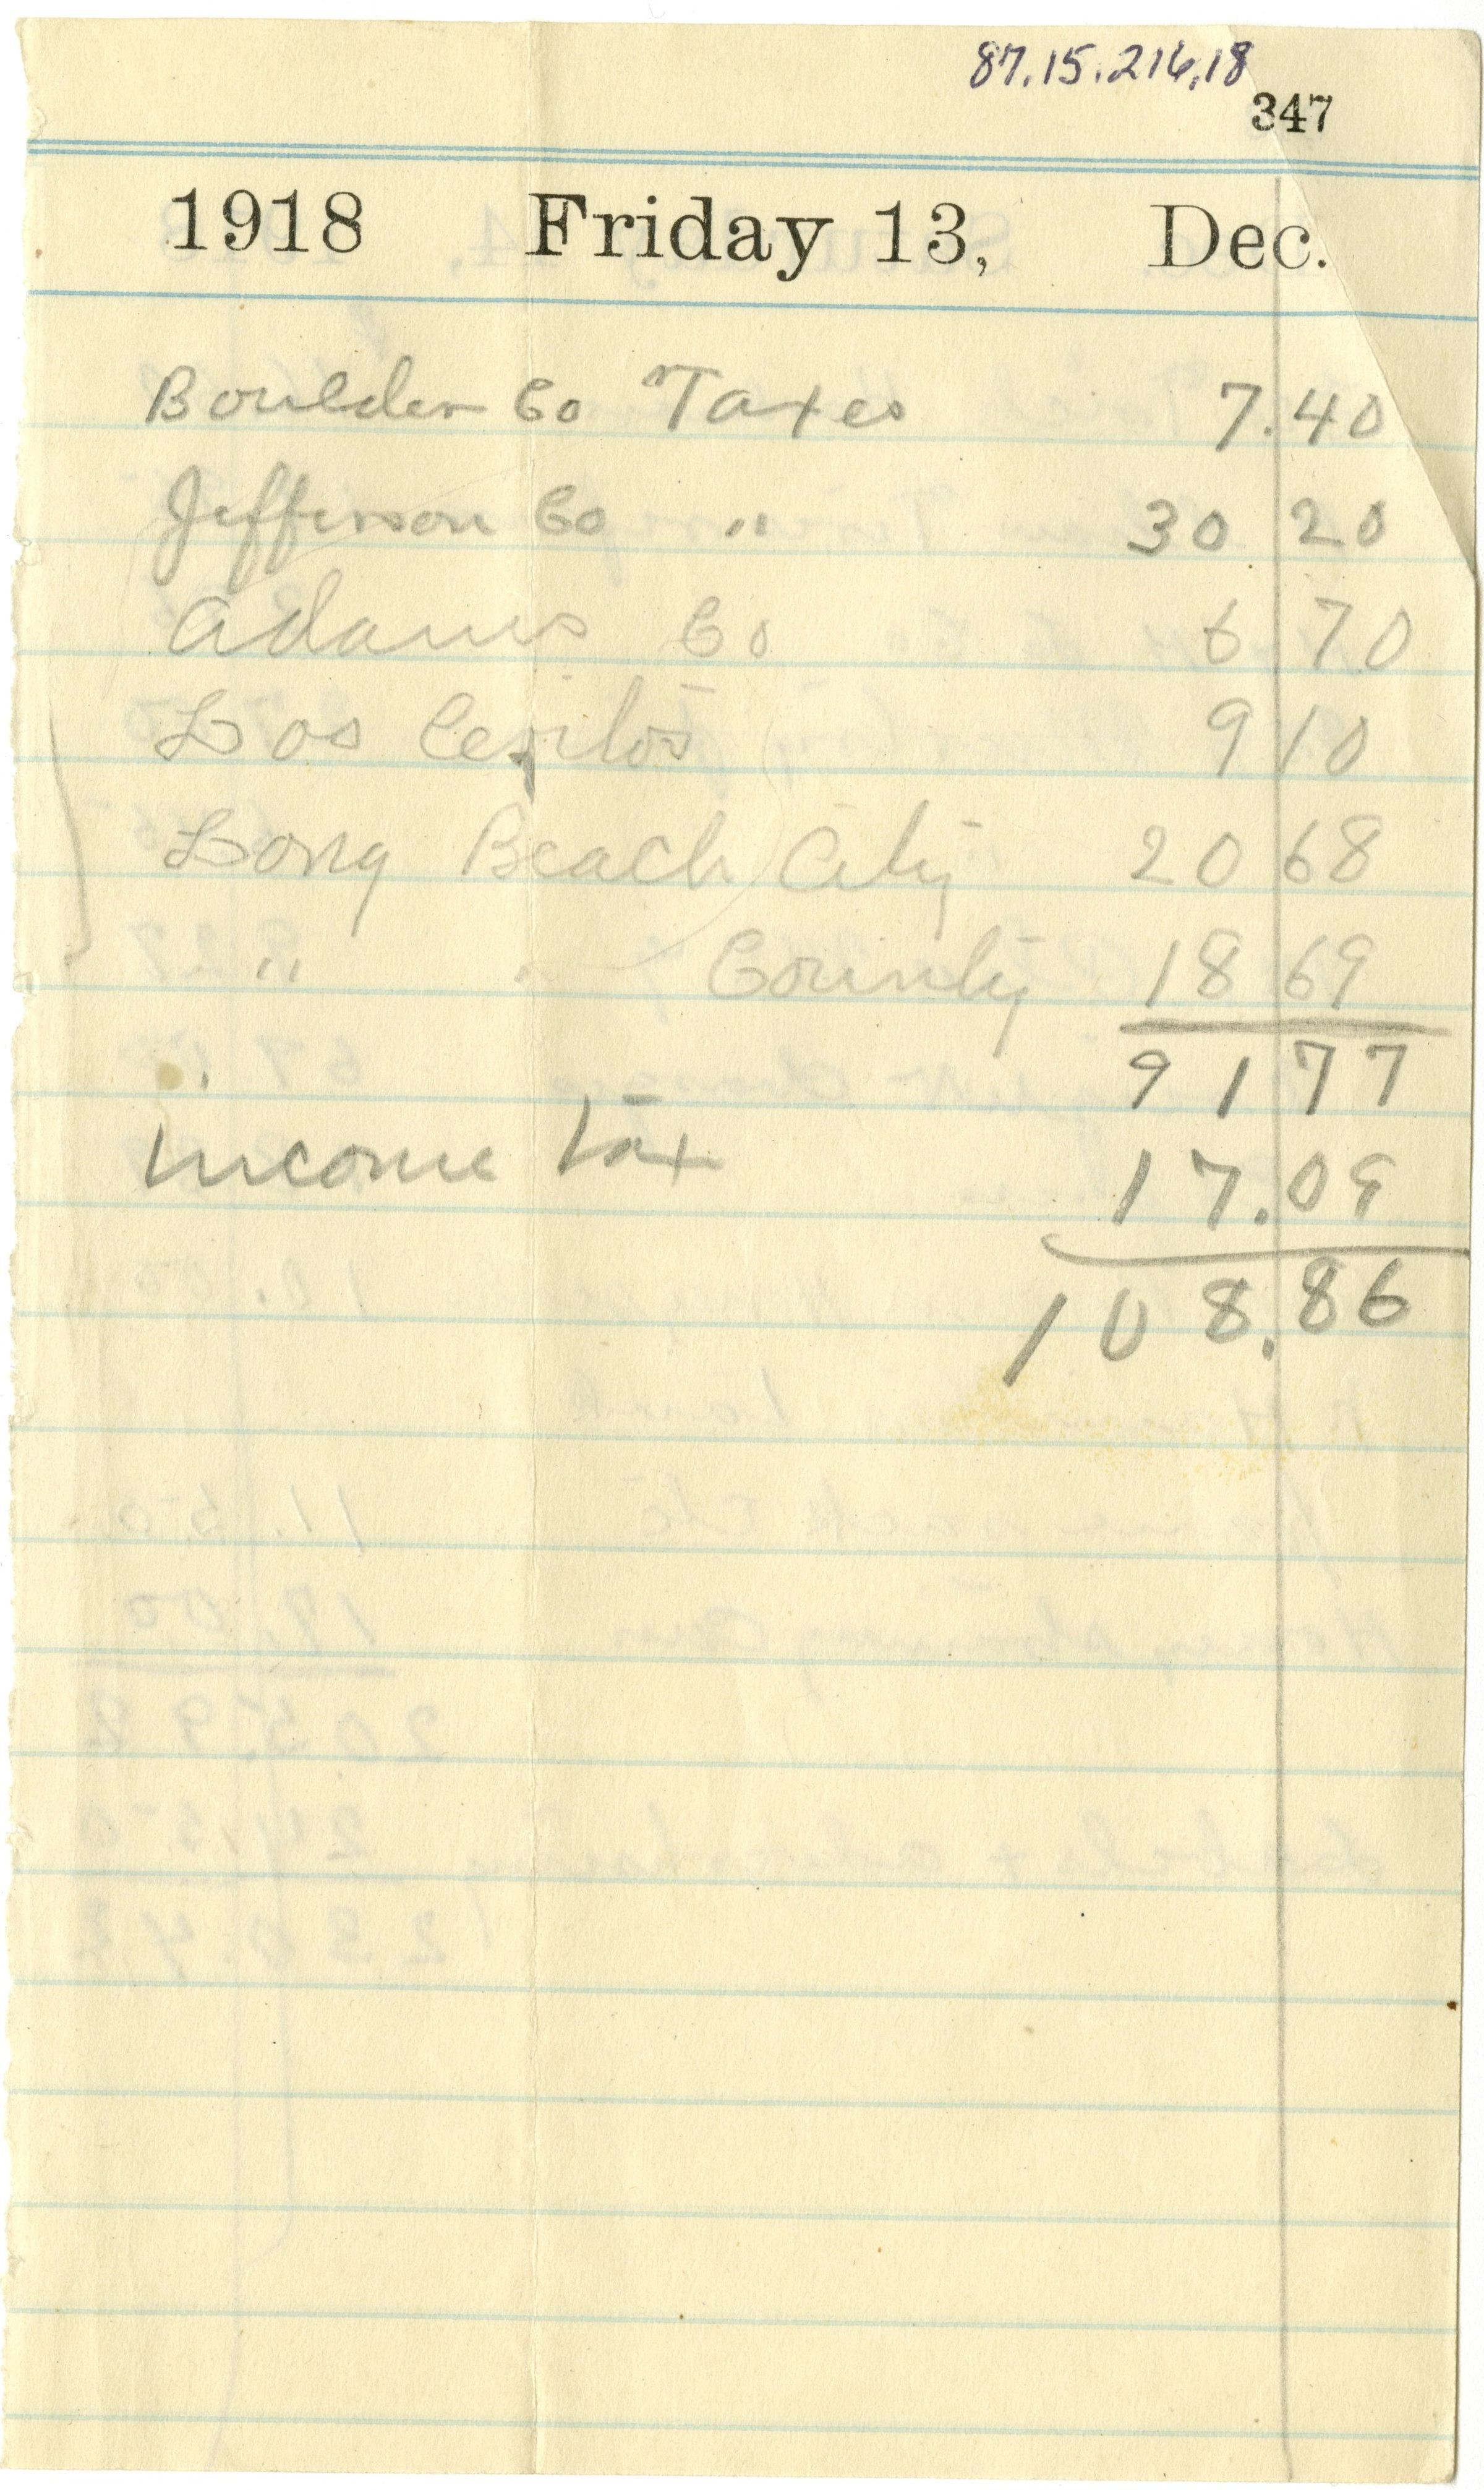 87.15.216.18
347
1918 Friday 13, Dec.
Boulder Co Taxes 7.40
Jefferson Co " 30 20
Adams Co 6 70
Los Cerritos 9 10
Long Beach City 20 68
" " County 18 69
91 77
Income tax 17.09
108.86